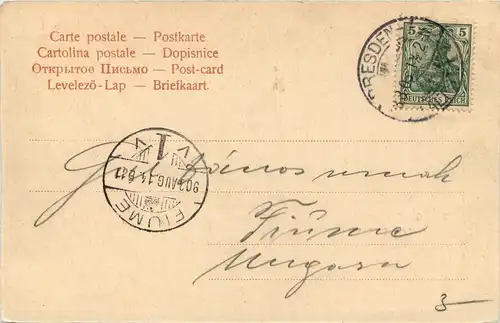 Carte postale — Postkarte
Cartolina postale — Dopisnice
Открытое Письмо — Post-card
Levelező-Lap — Briefkaart.
5 5
DRESDEN
DEUTSCHES REICH
FIUME
AUG. 14
János
Fiume
Ungarn
3-